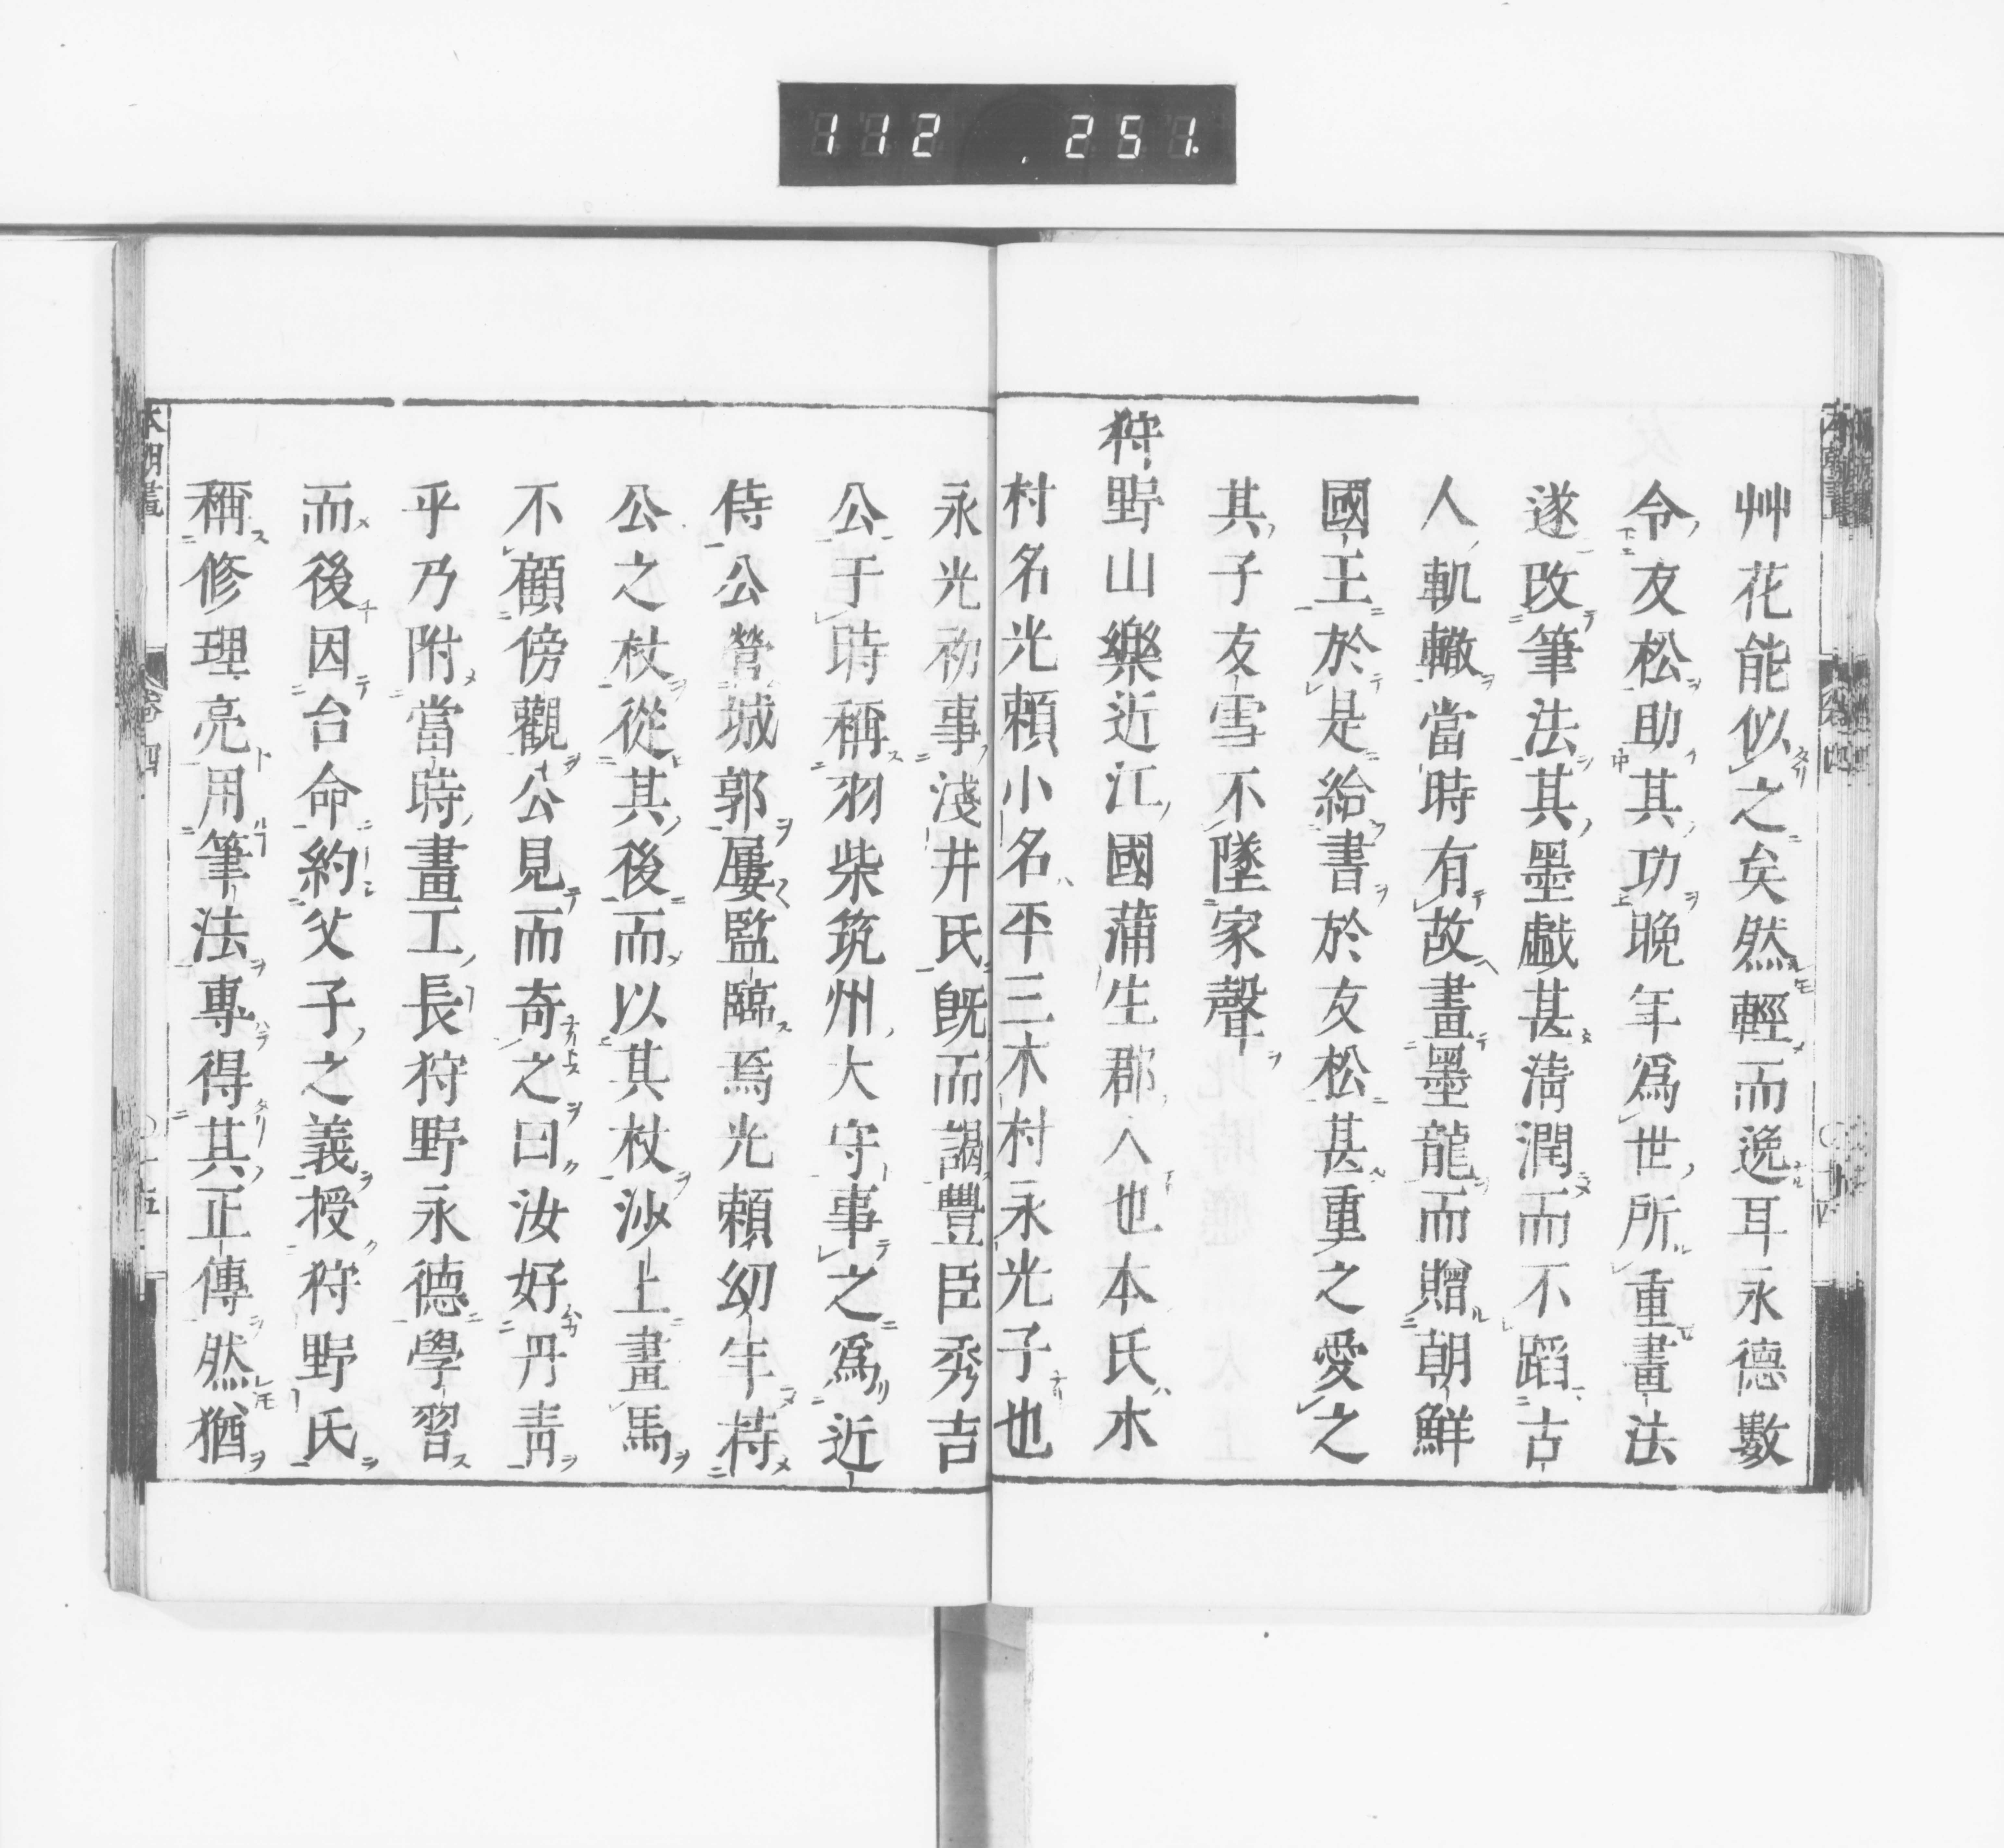 112 251.
艸花能似之矣然輕而逸耳永德數
令友松助其功晚年爲世所重畫法
遂改筆法其墨戯甚淸潤而不蹈古
人軌轍當時有故畫墨龍而贈朝鮮
國王於是給書於友松甚重之愛之
其子友雪不墜家聲
狩野山樂近江國蒲生郡人也本氏木
村名光頼小名平三木村永光子也
永光初事淺井氏旣而謁豐臣秀吉
公于時稱羽柴筑州大守事之爲近
侍公營城郭屢監臨焉光頼幼年持
公之杖從其後而以其杖沙上畫馬
不顧傍觀公見而奇之曰汝好丹青
乎乃附當時畫工長狩野永德學習
而後因台命約父子之義授狩野氏
稱修理亮用筆法專得其正傳然猶
本朝畫
卷四
十五